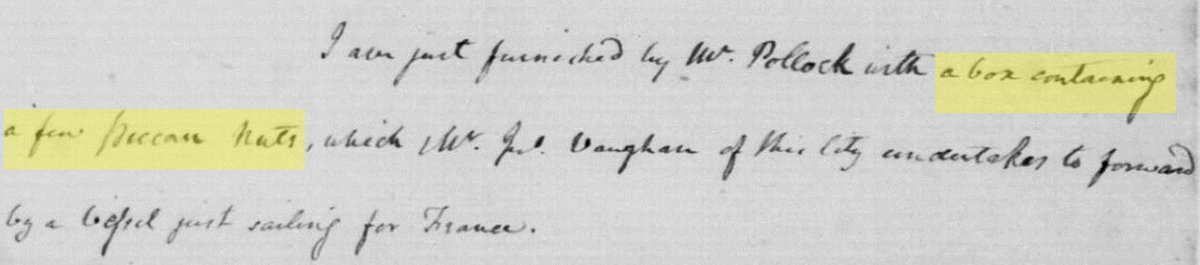 I am just furnished by Mr. Pollock with a box containing
a few peccan Nuts, which Mr. Jno. Vaughan of this City undertakes to forward
by a Vessel just sailing for France.